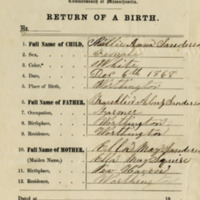 Commonwealth of Massachusetts.
RETURN OF A BIRTH.
No.
1. Full Name of CHILD,
2. Sex, Female
3. Color,* White
4. Date, Dec 6th 1868
5. Place of Birth, Worthington
6. Full Name of FATHER, Franklin
7. Occupation, Farmer
8. Birthplace, Worthington
9. Residence, Worthington
10. Full Name of MOTHER, Ella May
(Maiden Name,) Ella May
11. Birthplace, New Haven
12. Residence, Worthington
Dated at